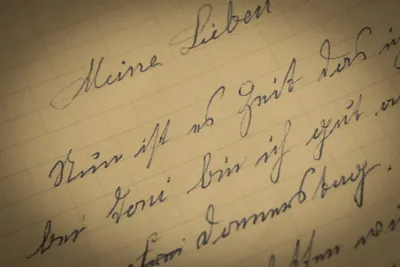 Meine Lieben
Nun ist es Zeit das ich
bei Toni bin ich gut a
Donnerstag.